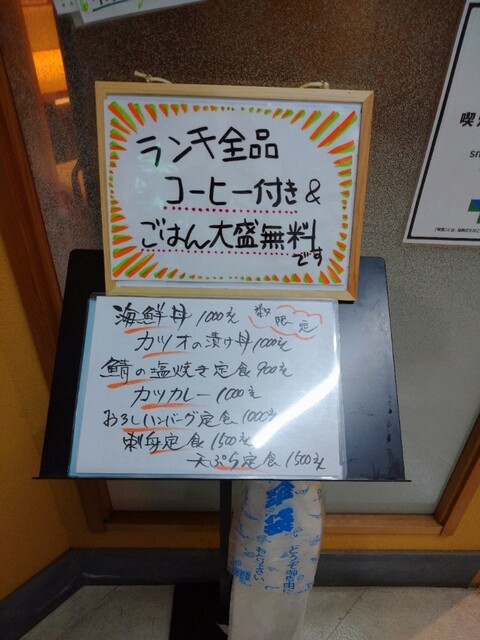 ランチ全品
コーヒー付き&
ごはん大盛無料
です
海鮮丼 1000円
限定
カツオの漬け丼 1000円
鯖の塩焼き定食 900円
カツカレー 1000円
おろしハンバーグ定食 1000円
刺身定食 1500円
天ぷら定食 1500円
喫
sm
どうぞ御自由に
お取り下さい